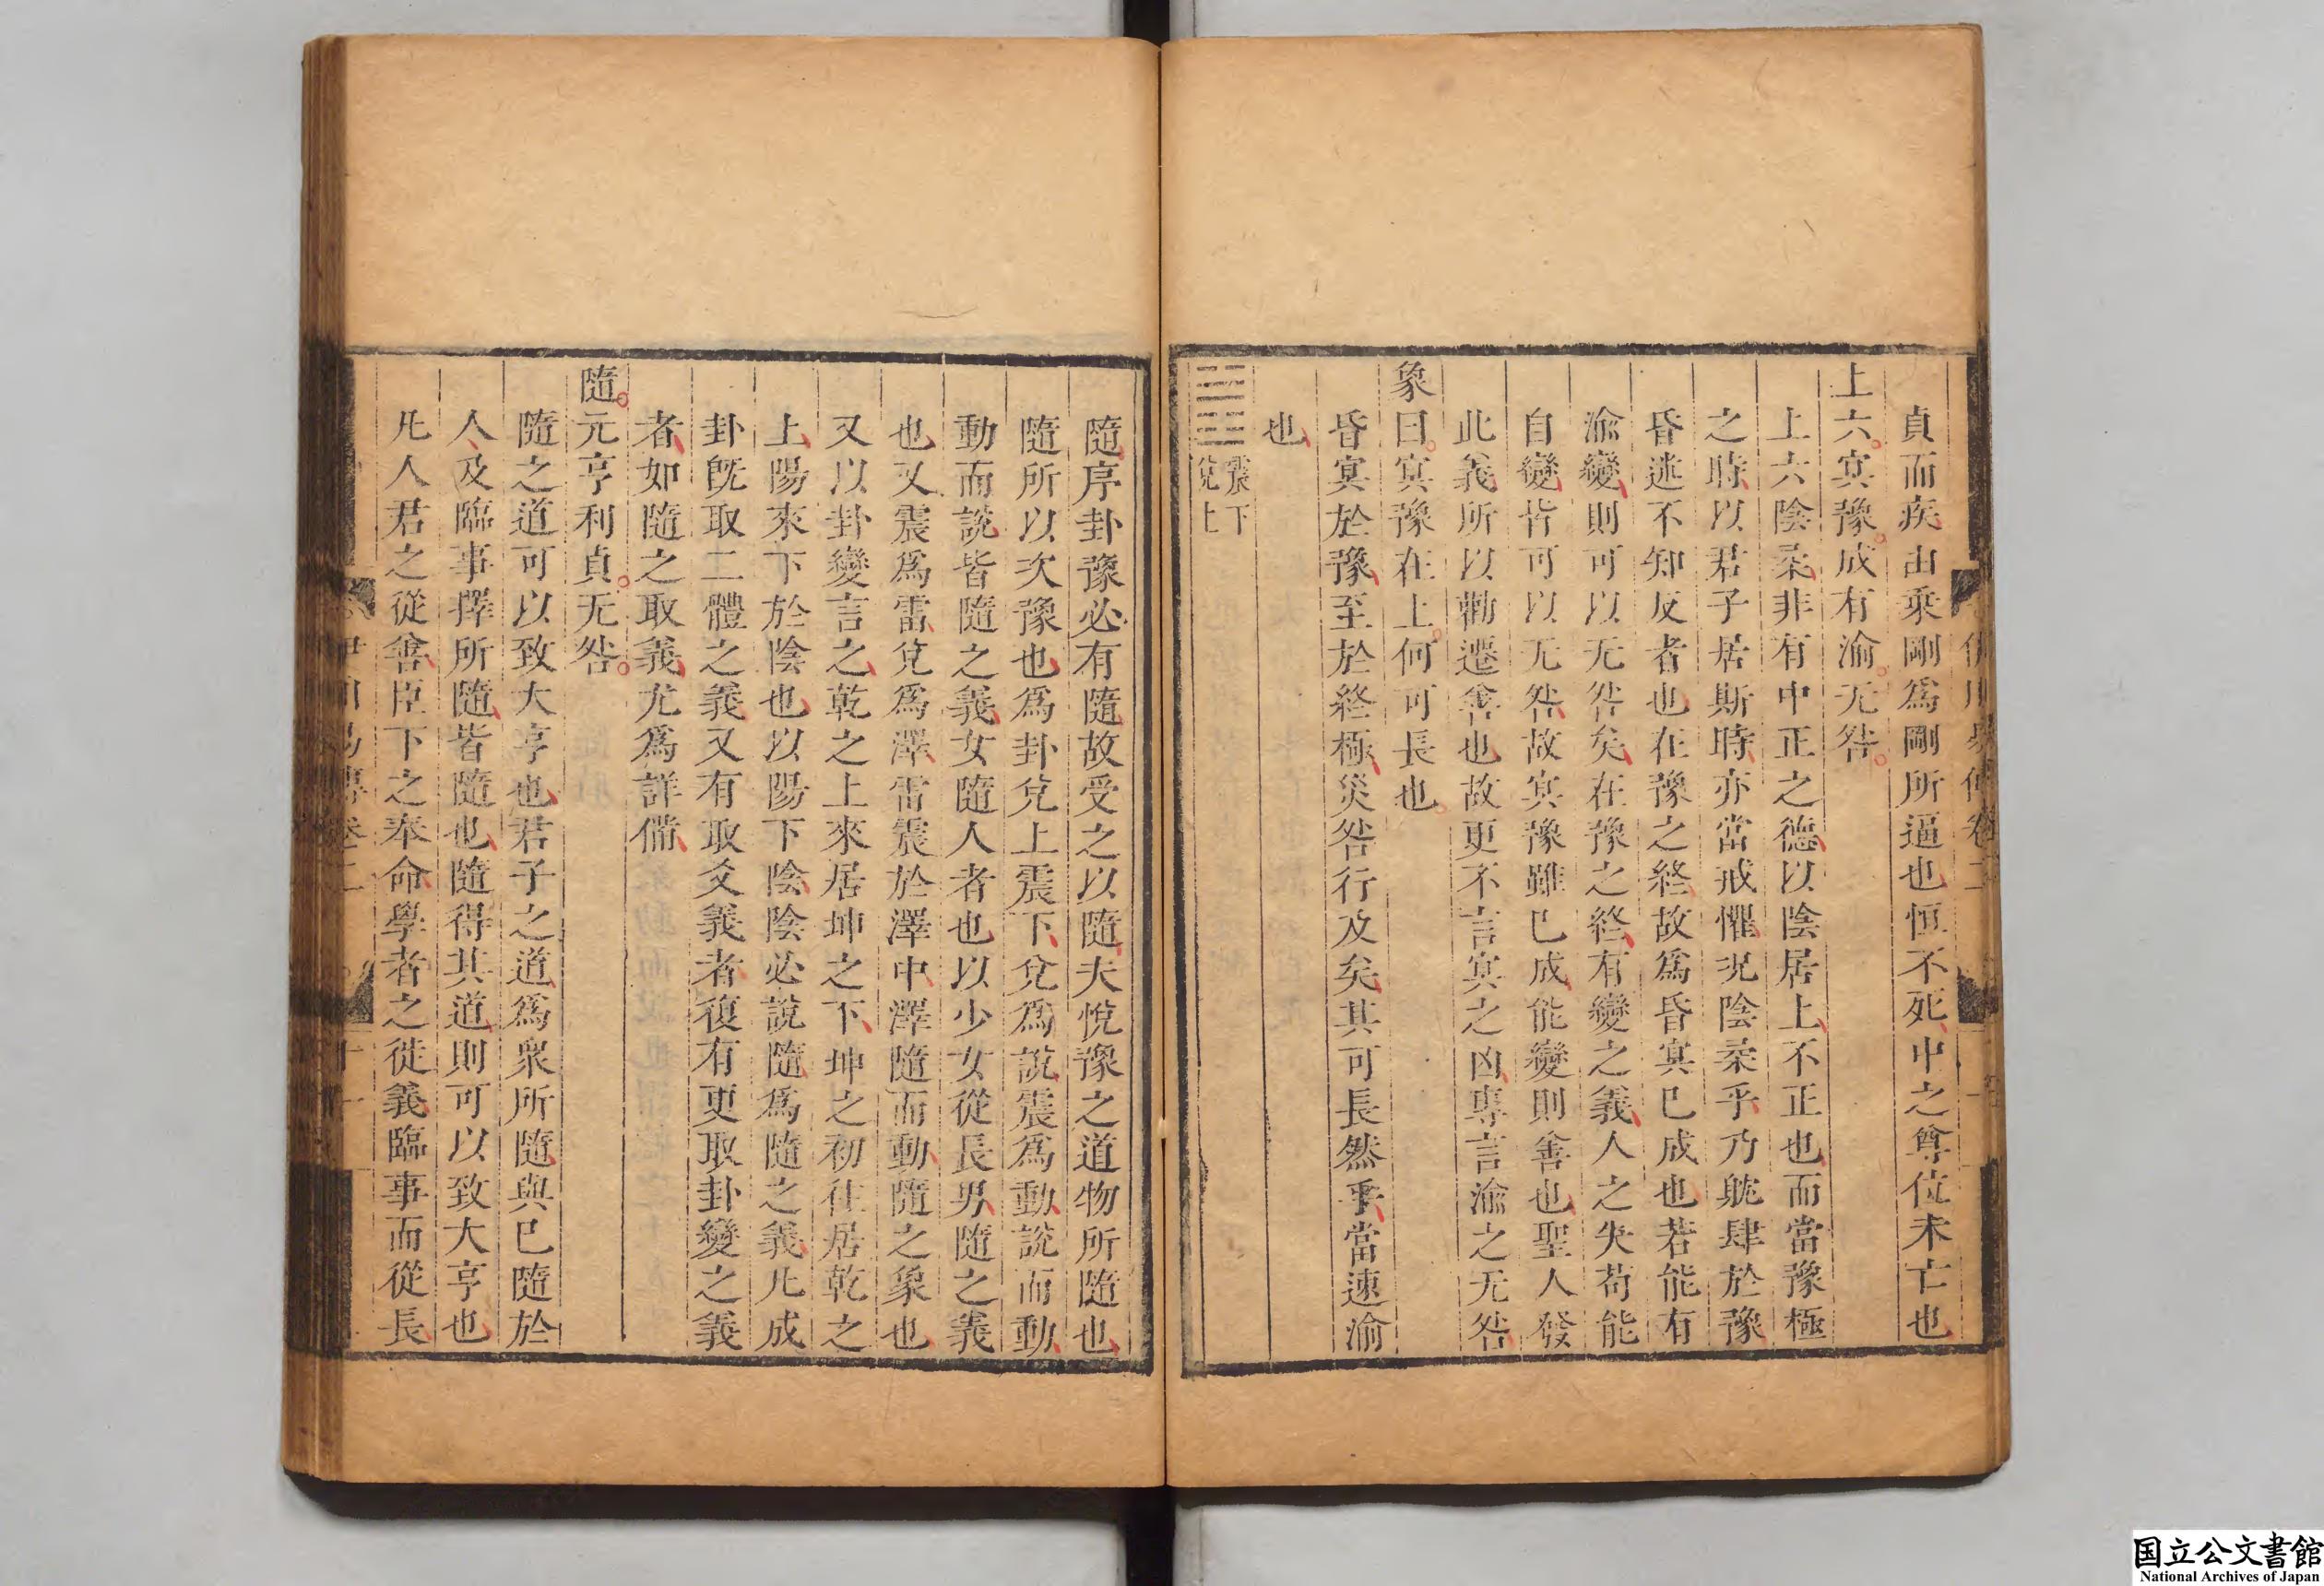 貞而疾由乘剛爲剛所逼也恒不死中之尊位未亡也
上六冥豫成有渝无咎
上六陰柔非有中正之德以陰居上不正也而當豫極
之時以君子居斯時亦當戒懼況陰柔乎乃躭肆於豫
昏迷不知反者也在豫之終故爲昏冥已成也若能有
渝變則可以无咎矣在豫之終有變之義人之失苟能
自變皆可以无咎故冥豫雖已成能變則善也聖人發
此義所以勸遷善也故更不言冥之凶專言渝之无咎
象曰冥豫在上何可長也
昏冥於豫至於終極災咎行及矣其可長然乎當速渝
也
震下
兌上
隨序卦豫必有隨故受之以隨夫悅豫之道物所隨也
隨所以次豫也爲卦兌上震下兌爲說震爲動說而動
動而說皆隨之義女隨人者也以少女從長男隨之義
也又震爲雷兌爲澤雷震於澤中澤隨而動隨之象也
又以卦變言之乾之上來居坤之下坤之初往居乾之
上陽來下於陰也以陽下陰陰必說隨爲隨之義凡成
卦旣取二體之義又有取爻義者復有更取卦變之義
者如隨之取義尤爲詳備
隨元亨利貞无咎
隨之道可以致大亨也君子之道爲衆所隨與己隨於
人及臨事擇所隨皆隨也隨得其道則可以致大亨也
凡人君之從善臣下之奉命學者之徙義臨事而從長
伊川易傳卷二
国立公文書館
National Archives of Japan